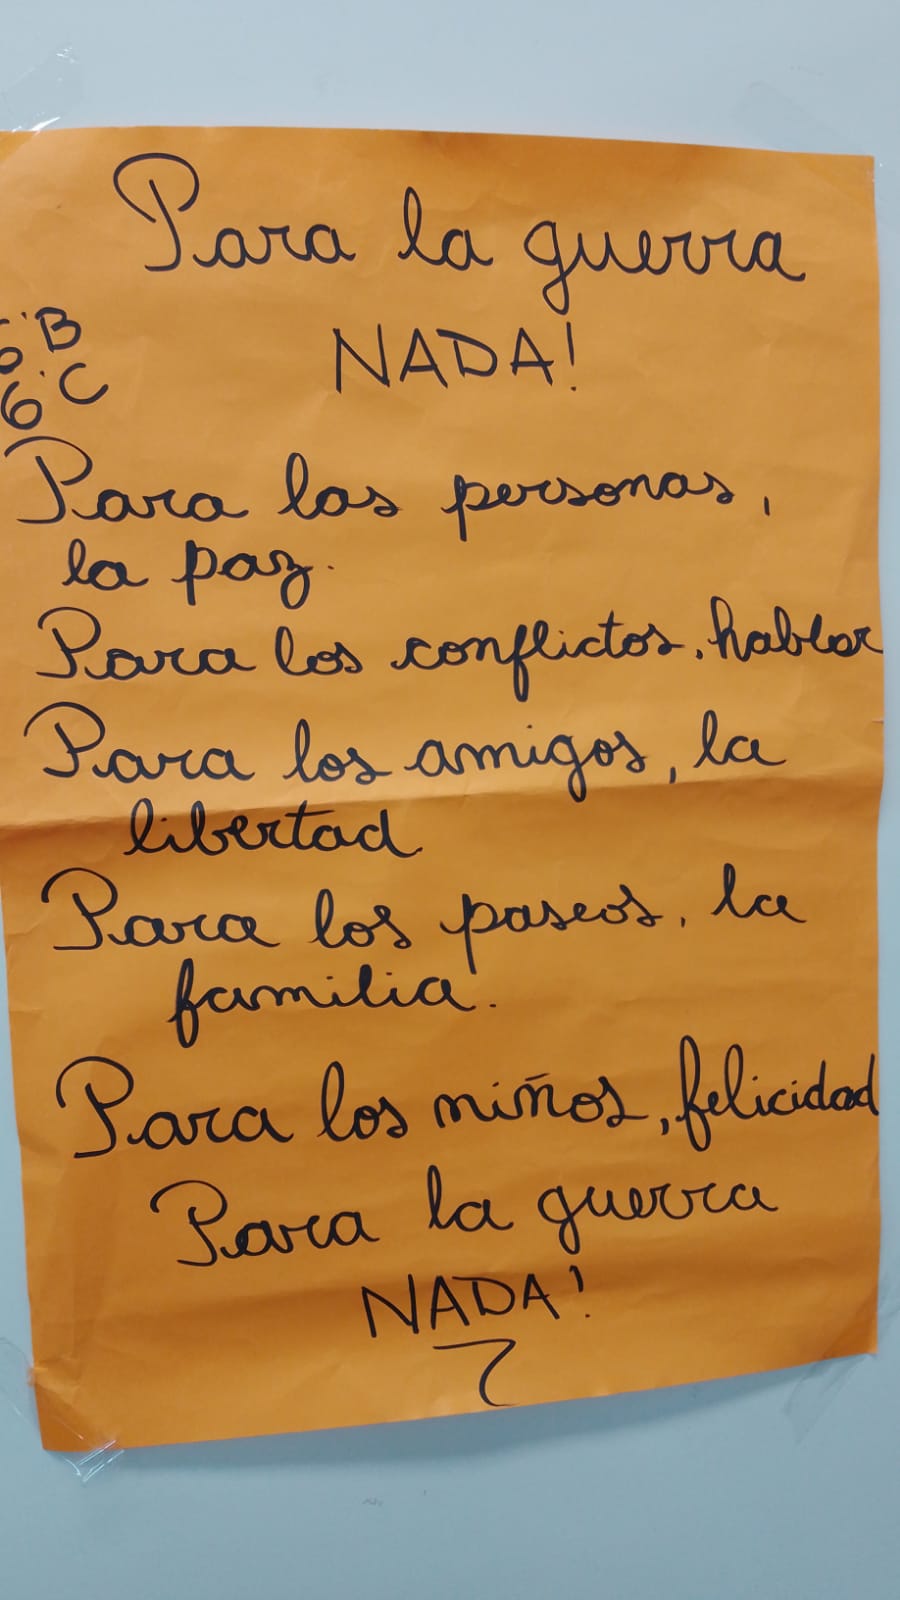 Para la guerra
NADA!
6ºB
6ºC
Para las personas,
la paz.
Para los conflictos, hablar
Para los amigos, la
libertad
Para los paseos, la
familia.
Para los niños, felicidad
Para la guerra
NADA!